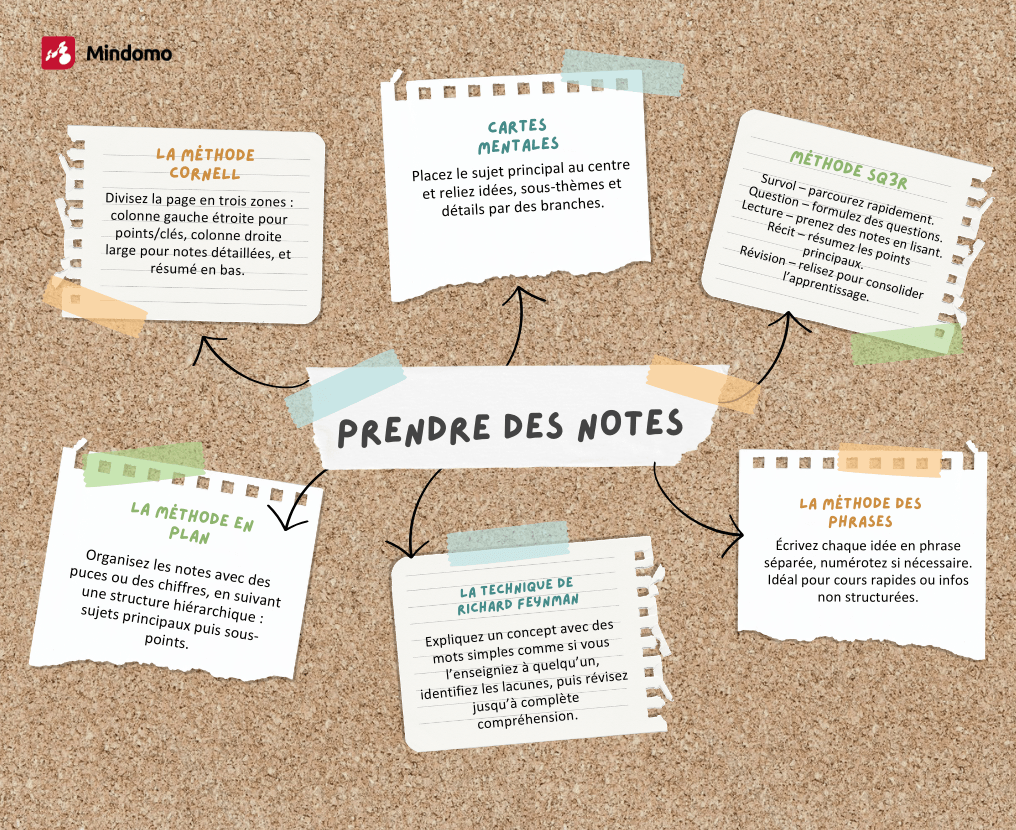 Mindomo
LA MÉTHODE
CORNELL
Divisez la page en trois zones :
colonne gauche étroite pour
points/clés, colonne droite
large pour notes détaillées, et
résumé en bas.
CARTES
MENTALES
Placez le sujet principal au centre
et reliez idées, sous-thèmes et
détails par des branches.
MÉTHODE SQ3R
Survol – parcourez rapidement.
Question – formulez des questions.
Lecture – prenez des notes en lisant.
Récit – résumez les points
principaux.
Révision – relisez pour consolider
l'apprentissage.
PRENDRE DES NOTES
LA MÉTHODE EN
PLAN
Organisez les notes avec des
puces ou des chiffres, en suivant
une structure hiérarchique :
sujets principaux puis sous-
points.
LA TECHNIQUE DE
RICHARD FEYNMAN
Expliquez un concept avec des
mots simples comme si vous
l'enseigniez à quelqu'un,
identifiez les lacunes, puis révisez
jusqu'à complète
compréhension.
LA MÉTHODE DES
PHRASES
Écrivez chaque idée en phrase
séparée, numérotez si nécessaire.
Idéal pour cours rapides ou infos
non structurées.